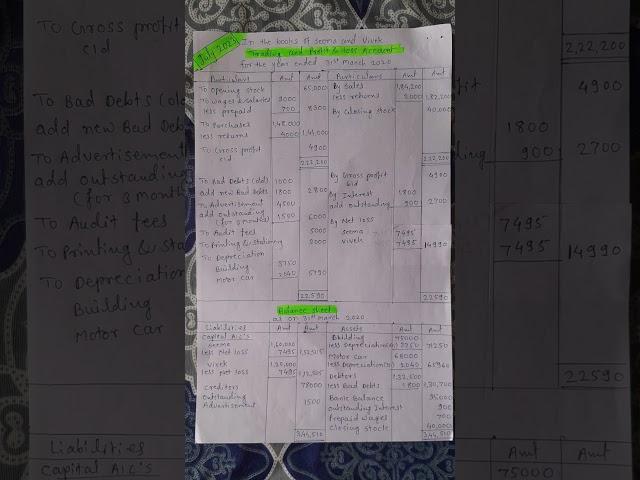 July 2023
In the books of Seema and Vivek
Trading and Profit & Loss Account
for the year ended 31st March 2020
Particulars Amt Amt Particulars Amt Amt
To Opening stock 65,000 By Sales 1,84,200
To Wages & salaries 9000 less returns 2000 1,82,200
less prepaid 700 8300 By Closing stock 40,000
To Purchases 1,48,000
less returns 4000 1,44,000
To Gross profit 4900
c/d
2,22,200 2,22,200
To Bad Debts (old) 1000 By Gross profit 4900
add new Bad Debts 1800 2800 b/d
To Advertisement 4500 By Interest 1800
add outstanding 1500 6000 add outstanding 900 2700
(for 3 months) By Net loss
To Audit fees 5000 Seema 7495
To Printing & stationery 2000 Vivek 7495 14990
To Depreciation
Building 3750
Motor Car 2040 5790
22590 22590
Balance sheet
as on 31st March 2020
Liabilities Amt Amt Assets Amt Amt
Capital A/c's Building 75000
Seema 1,60,000 less Depreciation 71250
less Net loss 7495 1,52,505 Motor Car 68000
Vivek 1,20,000 less Depreciation 2040 65960
less Net loss 7495 1,12,505 Debtors 1,32,500
Creditors 78000 less Bad Debts 1800 1,30,700
Outstanding 1500 Bank Balance 35000
Advertisement outstanding Interest 900
Prepaid Wages 700
Closing stock 40,000
3,44,510 3,44,510
To Gross profit
c/d
To Bad Debts (old)
add new Bad Deb
To Advertisement
add outstanding
(for 3 month
To Audit fees
To Printing & sta
To Depreciation
Building
Motor Car
Liabilities
Capital A/c's
2,22,200
4900
1800
900 2700
7495
7495 14990
22590
Amt Amt
75000